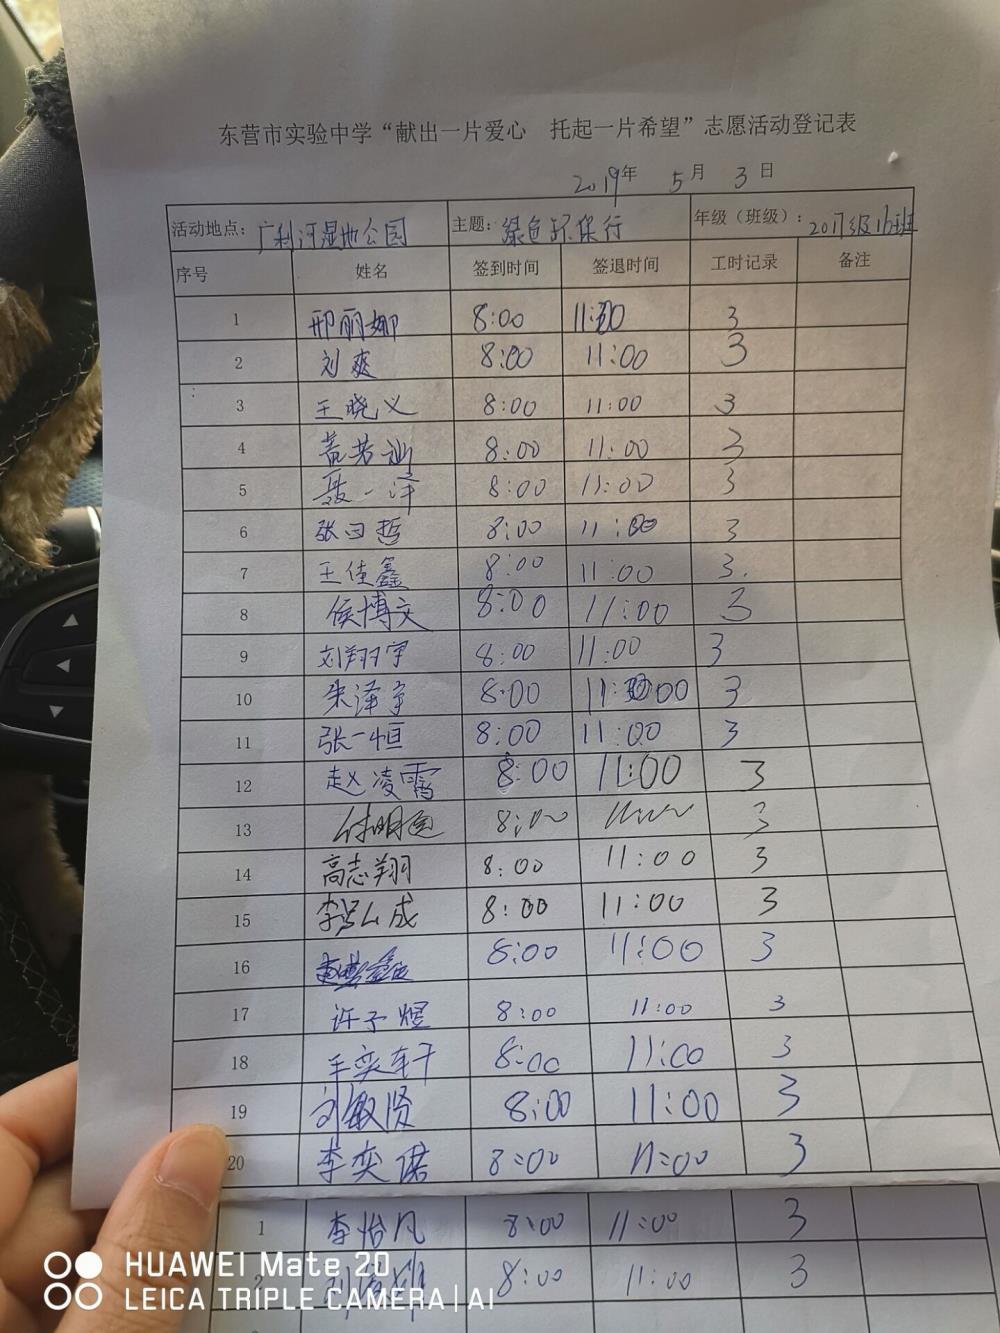 东营市实验中学“献出一片爱心 托起一片希望”志愿活动登记表
2019年 5月 3日
活动地点：广利河湿地公园 主题：绿色环保行 年级（班级）：2017级16班
序号 姓名 签到时间 签退时间 工时记录 备注
1 邢丽娜 8:00 11:00 3
2 刘爽 8:00 11:00 3
3 王晓义 8:00 11:00 3
4 8:00 11:00 3
5 聂一泽 8:00 11:00 3
6 张曰哲 8:00 11:00 3
7 王佳鑫 8:00 11:00 3.
8 侯博文 8:00 11:00 3
9 刘翔宇 8:00 11:00 3
10 朱泽宇 8:00 11:00 3
11 张一恒 8:00 11:00 3
12 赵凌霄 8:00 11:00 3
13 8:00 11:00 3
14 高志翔 8:00 11:00 3
15 李弘成 8:00 11:00 3
16 8:00 11:00 3
17 许子煜 8:00 11:00 3
18 8:00 11:00 3
19 刘敏贤 8:00 11:00 3
20 李奕诺 8:00 11:00 3
1 李怡凡 8:00 11:00 3
2 8:00 11:00 3
HUAWEI Mate 20
LEICA TRIPLE CAMERA | AI